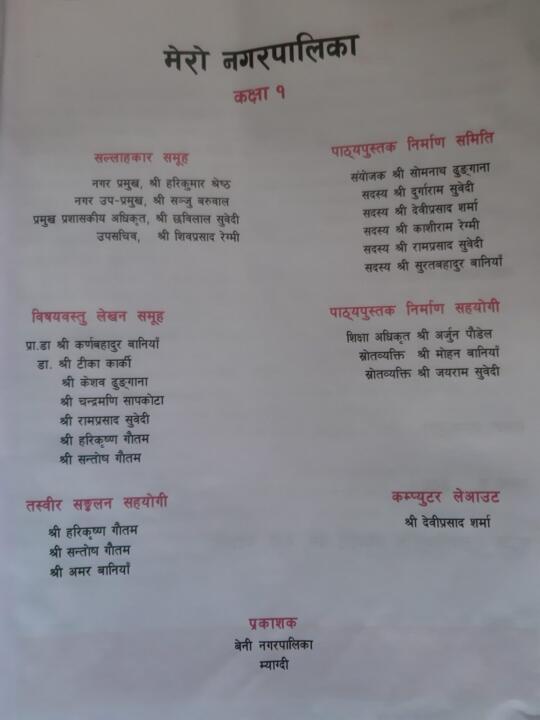 मेरो नगरपालिका
कक्षा १
सल्लाहकार समूह
नगर प्रमुख, श्री हरिकुमार श्रेष्ठ
नगर उप-प्रमुख, श्री सञ्जु बरुवाल
प्रमुख प्रशासकीय अधिकृत, श्री छविलाल सुवेदी
उपसचिव, श्री शिवप्रसाद रेग्मी
पाठ्यपुस्तक निर्माण समिति
संयोजक श्री सोमनाथ ढुङ्गाना
सदस्य श्री दुर्गाराम सुवेदी
सदस्य श्री देवीप्रसाद शर्मा
सदस्य श्री काशीराम रेग्मी
सदस्य श्री रामप्रसाद सुवेदी
सदस्य श्री सुरतबहादुर बानियाँ
विषयवस्तु लेखन समूह
प्रा.डा श्री कर्णबहादुर बानियाँ
डा. श्री टीका कार्की
श्री केशव ढुङ्गाना
श्री चन्द्रमणि सापकोटा
श्री रामप्रसाद सुवेदी
श्री हरिकृष्ण गौतम
श्री सन्तोष गौतम
पाठ्यपुस्तक निर्माण सहयोगी
शिक्षा अधिकृत श्री अर्जुन पौडेल
स्रोतव्यक्ति श्री मोहन बानियाँ
स्रोतव्यक्ति श्री जयराम सुवेदी
तस्वीर सङ्कलन सहयोगी
श्री हरिकृष्ण गौतम
श्री सन्तोष गौतम
श्री अमर बानियाँ
कम्प्युटर लेआउट
श्री देवीप्रसाद शर्मा
प्रकाशक
बेनी नगरपालिका
म्याग्दी